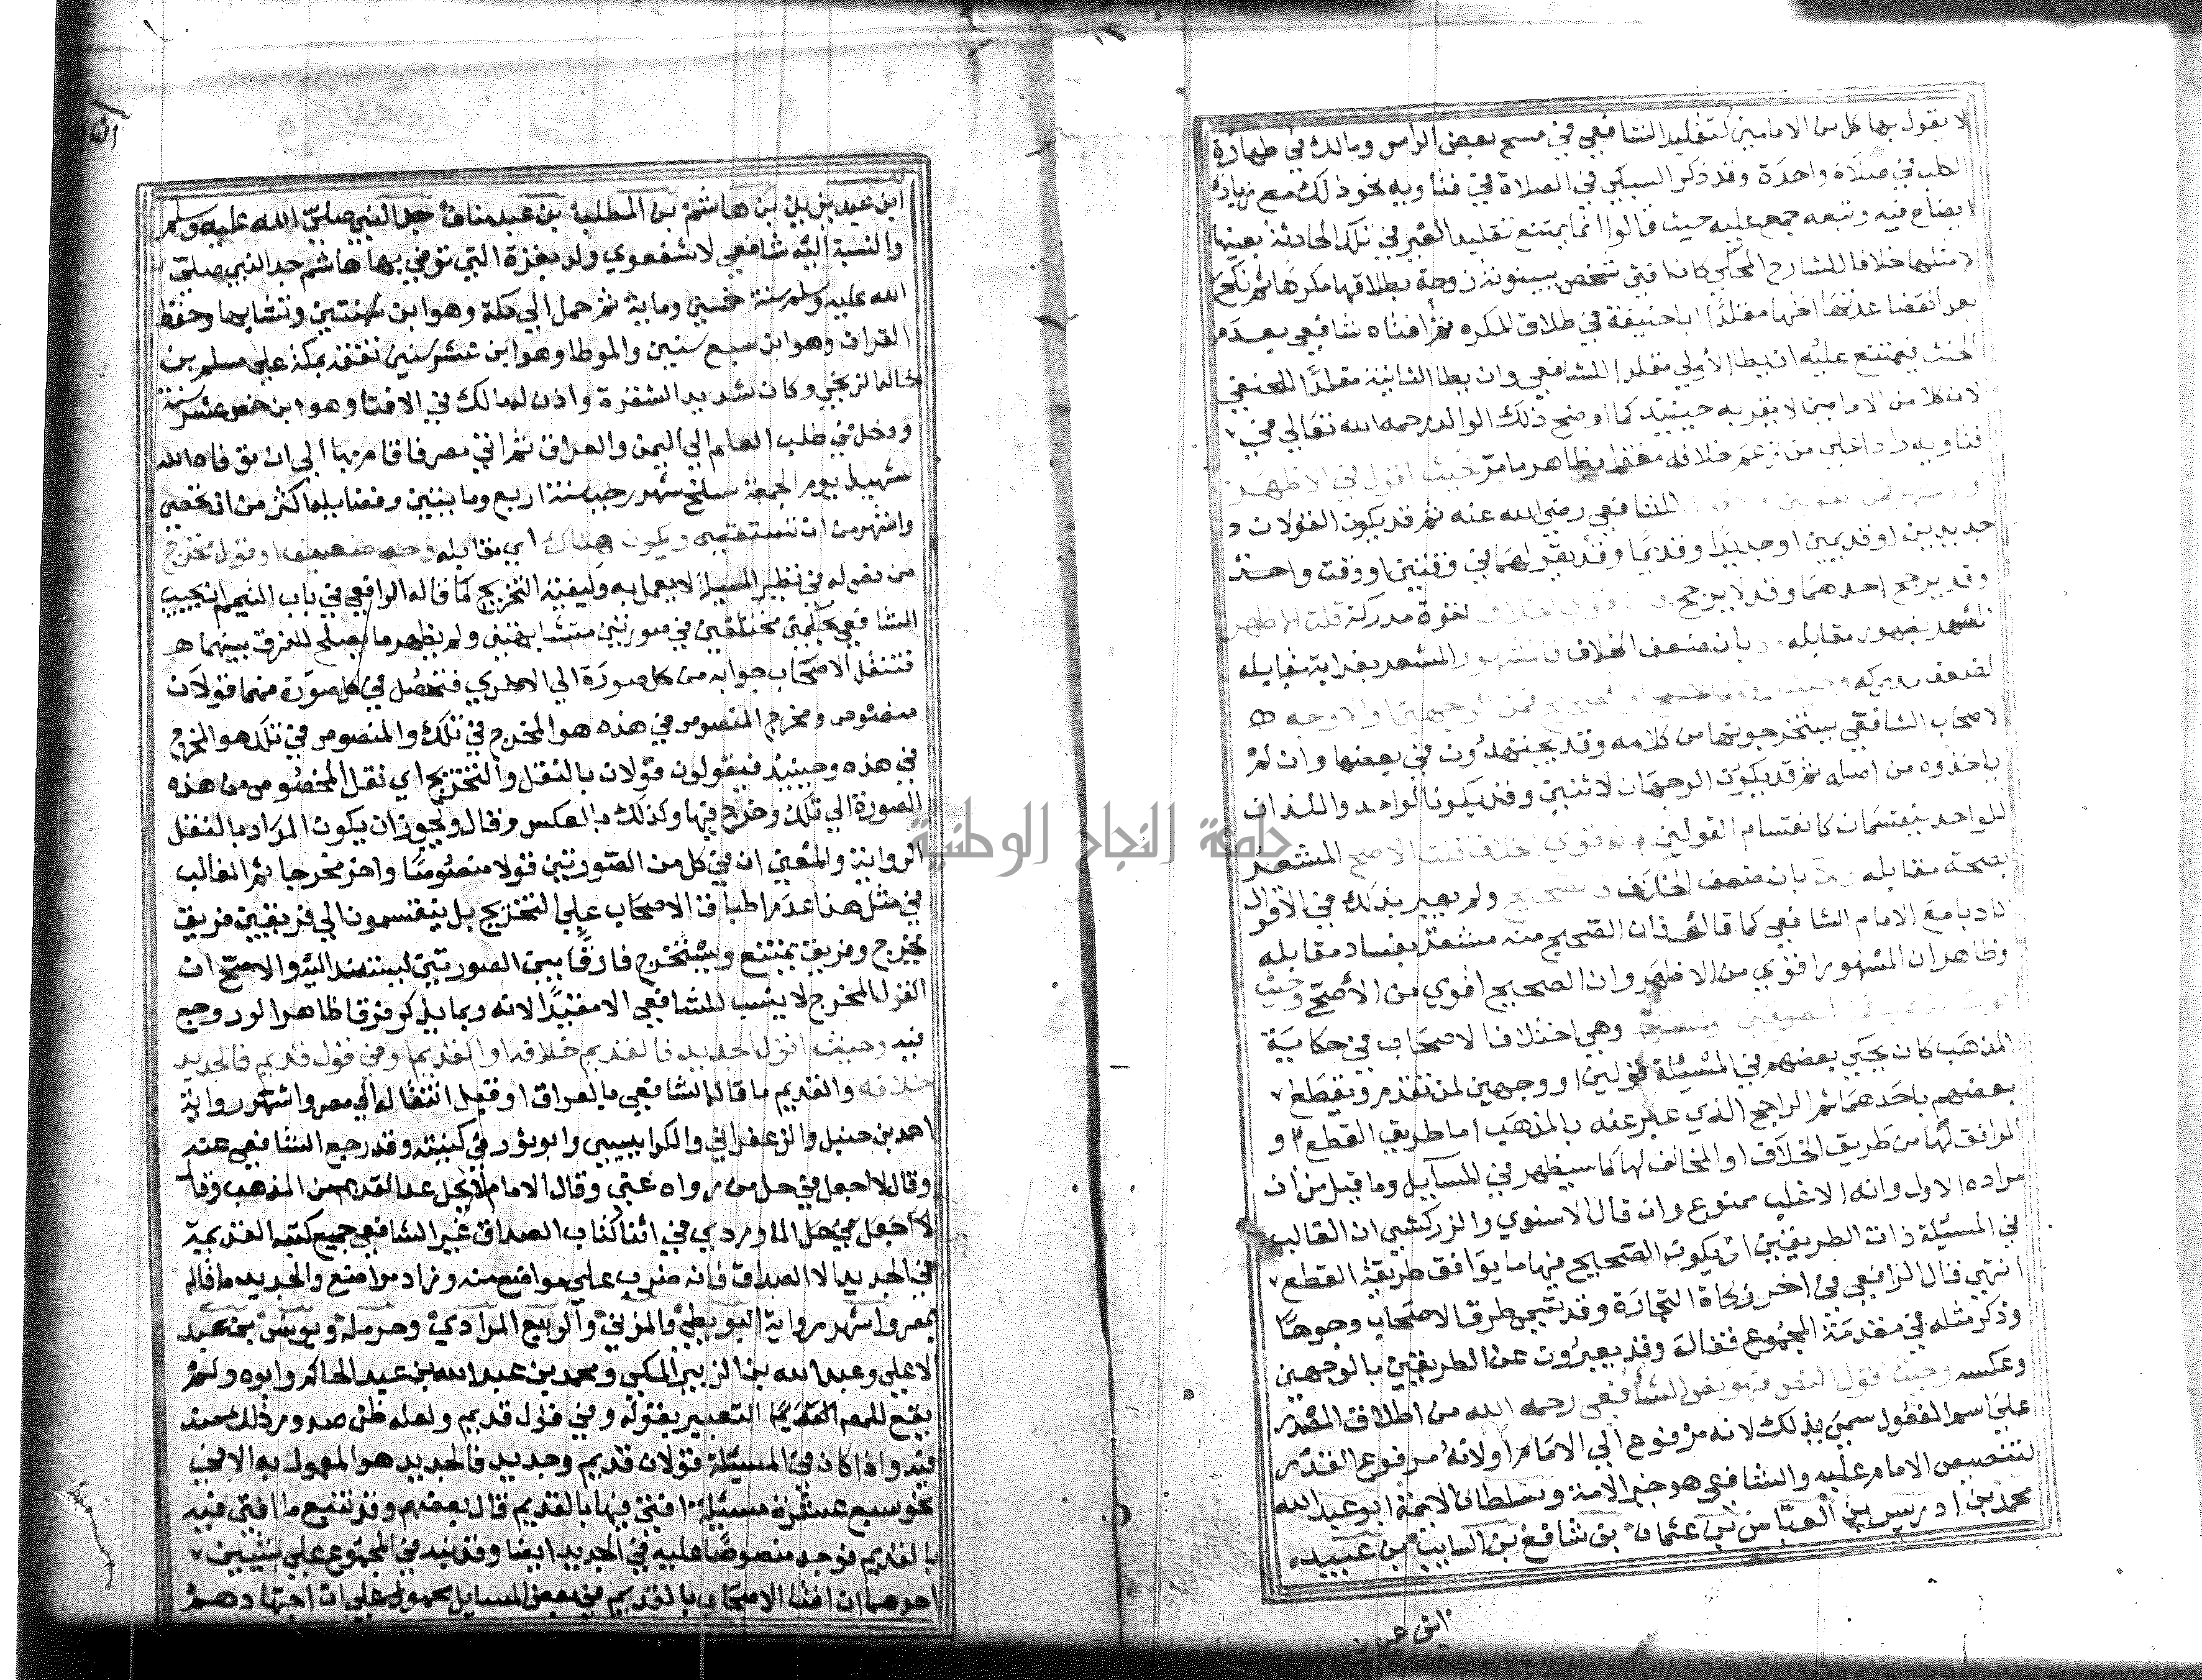 لا يقول بها كل من الامامين كتقليد الشافعي في مسح بعض الراس ومالك في طهارة
الكلب في صلاة واحدة وقد ذكر السبكي في الصلاة في فتاويه نحو ذلك مع زيادة
ايضاح فيه وتبعه جمع عليه حيث قالوا انما يمتنع تقليد الغير في تلك الحادثة بعينها
لا مثلها خلافا للشارح المحلي كان افتى شخص ببينونة زوجة بطلاقها مكرها ثم نكح
بعد انقضا عدتها اختها مقلدا ابا حنيفة في طلاق المكره ثم افتاه شافعي بعدم
الحنث فيمتنع عليه ان يطا الاولي مقلدا للشافعي وان يطا الثانية مقلدا للحنفي
لان كلا من الامامين لا يقر به حينيذ كما اوضح ذلك الوالد رحمه الله تعالي في
فتاويه رادا علي من زعم خلافه مغترا بظاهر ما مر حيث اقول في الاظهر
للشافعي رضي الله عنه ثم قد يكون القولان
جديدين او قديمين او جديدا وقديما وقد يقولهما في وقتين او وقت واحد
وقد يرجح احدهما وقد لا يرجح لقوة مدركة قلت الاظهر
المشعر بظهور مقابله بان ضعف الخلاف فالمشهور المشعر بغرابة مقابله
لضعف مدركه وحيث الوجهين والاوجه
لاصحاب الشافعي يستخرجونها من كلامه وقد يجتهدون في بعضها وان لم
ياخذوه من اصله ثم قد يكون الوجهان لاثنين وقد يكونا لواحد واللذان
للواحد ينقسمان كانقسام القولين قوي الخلاف قلت الاصح المشعر
بصحة مقابله بان ضعف الخلاف فالصحيح ولم يعبر بذلك في الاقوال
تادبا مع الامام الشافعي كما قال فان الصحيح منه مشعر بفساد مقابله
وظاهر ان المشهور اقوي من الاظهر وان الصحيح اقوي من الاصح وحيث
وهي اختلاف الاصحاب في حكاية
المذهب كان يحكي بعضهم في المسئلة قولين او وجهين لمن تقدم ويقطع
بعضهم باحدهما ثم الراجح الذي عبر عنه بالمذهب اما طريق القطع او
الموافق لها من طريق الخلاف او المخالف لها كما سيظهر في المسايل وما قيل من ان
مراده الاول وانه الاغلب ممنوع وان قال الاسنوي والزركشي ان الغالب
في المسئلة ذات الطريقين ان يكون الصحيح فيها ما يوافق طريقة القطع
انتهي قال الرافعي في اخر زكاة التجارة وقد تسمي طرق الاصحاب وجوها
وذكر مثله في مقدمة المجموع فقال وقد يعبرون عن الطريقين بالوجهين
وعكسه وحيث اقول النص فهو نص الشافعي رحمه الله من اطلاق المصدر
علي اسم المفعول سمي بذلك لانه مرفوع الي الامام او لانه مرفوع القدر
لتنصيص الامام عليه والشافعي هو حبر الامة وسلطان الايمة ابو عبد الله
محمد بن ادريس بن العباس بن عثمان بن شافع بن السايب بن عبيد
ابن عبد
ابن عبد يزيد بن هاشم بن المطلب بن عبد مناف جد النبي صلي الله عليه وسلم
والنسبة اليه شافعي لا شفعوي ولد بغزة التي توفي بها هاشم جد النبي صلي
الله عليه وسلم سنة خمسين وماية ثم حمل الي مكة وهو ابن سنتين ونشا بها وحفظ
القران وهو ابن سبع سنين والموطا وهو ابن عشر سنين تفقه بمكة علي مسلم بن
خالد الزنجي وكان شديد الشقرة واذن له مالك في الافتا وهو ابن خمس عشر سنة
ورحل في طلب العلم الي اليمن والعراق ثم اتي مصر فاقام بها الي ان توفاه الله
شهيدا يوم الجمعة سلخ شهر رجب سنة اربع ومايتين وفضايله اكثر من ان تحصي
واشهر من ان تستقصي ويكون هناك اي مقابله وجه ضعيف او قول مخرج
من نص له في نظير المسيلة لا يعمل به وكيفية التخريج كما قاله الرافعي في باب التيمم ان يجيب
الشافعي بحكمين مختلفين في صورتين متشابهتين ولم يظهر ما يصلح للفرق بينهما
فتنقل الاصحاب جوابه من كل صورة الي الاخري فتحصل في كل صورة منهما قولان
منصوص ومخرج المنصوص في هذه هو المخرج في تلك والمنصوص في تلك هو المخرج
في هذه وحينيذ فيقولون قولان بالنقل والتخريج اي نقل المنصوص من هذه
الصورة الي تلك وخرج فيها وكذلك بالعكس وقال ويجوز ان يكون المراد بالنقل
الرواية والمعني ان في كل من الصورتين قولا منصوصا واخر مخرجا ثم الغالب
في مثل هذا عدم اطباق الاصحاب علي التخريج بل ينقسمون الي فريقين فريق
يخرج وفريق يمتنع ويستخرج فارقا بين الصورتين ليستند اليه والاصح ان
القول المخرج لا ينسب للشافعي الا مقيدا لانه ربما يذكر فرقا ظاهرا لو روجع
فيه وحيث اقول الجديد فالقديم خلافه او القديم او في قول قديم فالجديد
خلافه والقديم ما قاله الشافعي بالعراق او قبل انتقاله الي مصر واشهر رواية
احمد بن حنبل والزعفراني والكرابيسي وابو ثور في كتبه وقد رجع الشافعي عنه
وقال لا اجعل في حل من رواه عني وقال الامام لا يحل عد القديم من المذهب وقال
لا اجعل في حل الماوردي في اثنا كتاب الصداق غير الشافعي جميع كتبه القديمة
في الجديد الا الصداق فانه ضرب علي مواضع منه وزاد مواضع والجديد ما قاله
بمصر واشهر رواية البويطي والمزني والربيع المرادي وحرملة ويونس بن عبد
الاعلي وعبد الله بن الزبير المكي ومحمد بن عبد الله بن عبد الحاكم وابوه ولم
يقع للمصنف التعبير بقوله وفي قول قديم ولعله ظن صدور ذلك عنه
فيه واذا كان في المسيلة قولان قديم وجديد فالجديد هو المعمول به الا في
نحو سبع عشرة مسيلة افتي فيها بالقديم قال بعضهم وقد تتبع ما افتي فيه
بالقديم فوجد منصوصا عليه في الجديد ايضا وقد نبه في المجموع علي شيين
احدهما ان افتا الاصحاب بالقديم في بعض المسايل محمول علي ان اجتهادهم